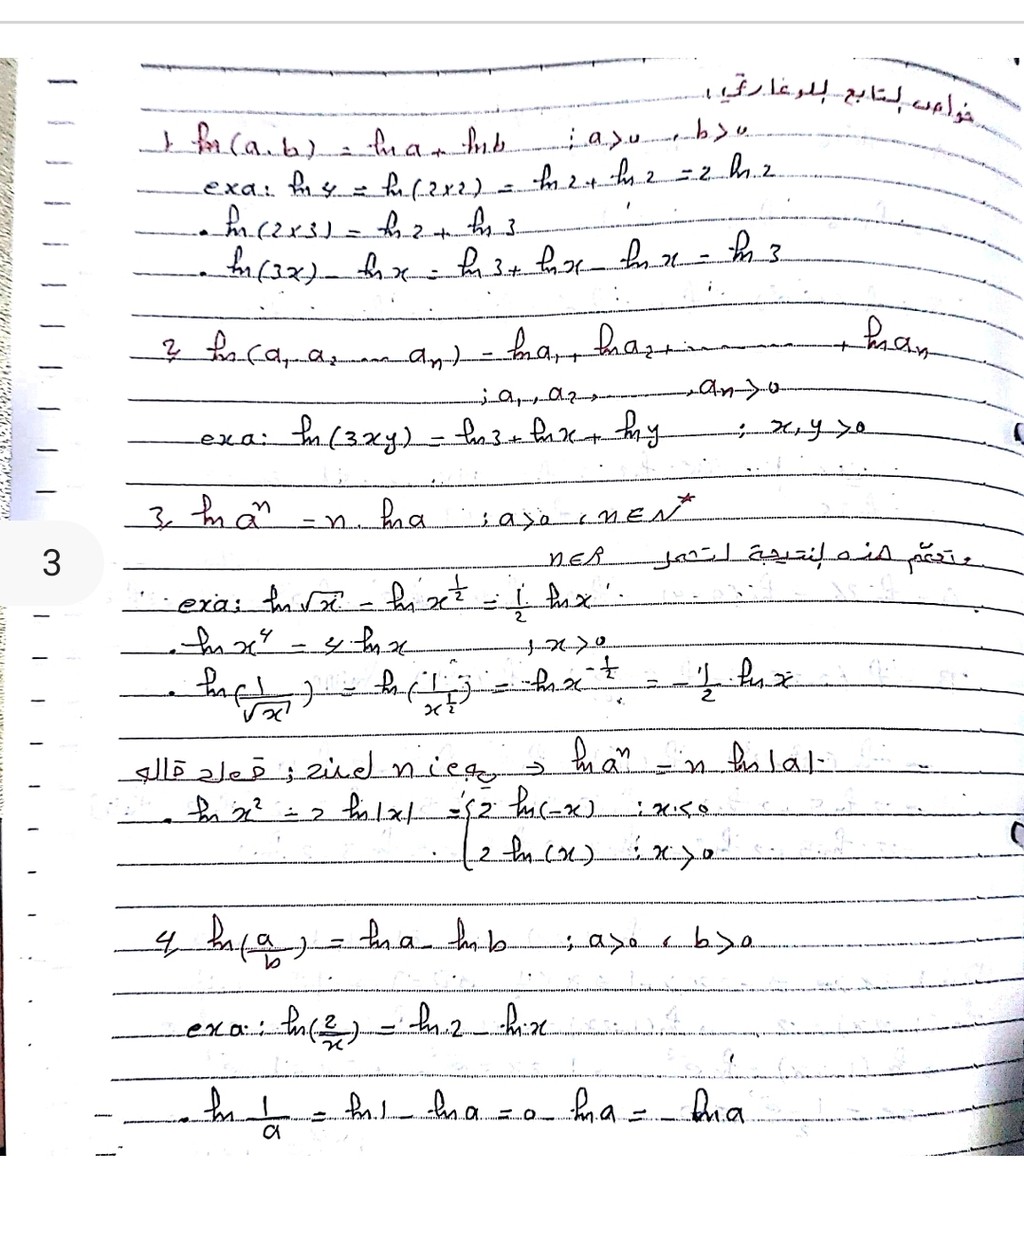 خواص التابع اللوغارتمي:
1, ln(a.b) = ln a + ln b ; a>0 , b>0
exa: ln 4 = ln(2x2) = ln 2 + ln 2 = 2 ln 2
. ln(2x3) = ln 2 + ln 3
. ln(3x) - ln x = ln 3 + ln x - ln x = ln 3
2, ln(a₁ a₂ .... aₙ) = ln a₁ + ln a₂ + ........ + ln aₙ
; a₁, a₂, ......, aₙ > 0
exa: ln(3xy) = ln 3 + ln x + ln y ; x, y > 0
3
3, ln aⁿ = n . ln a ; a>0 , n∈N*
وتعمم هذه النتيجة لتشمل n∈R
exa: ln √x = ln x^½ = ½ ln x
. ln x⁴ = 4 ln x , x>0
. ln(1/√x) = ln(1/x^½) = ln x^-½ = -½ ln x
n ⇒ ln aⁿ = n ln|a|
. ln x² = 2 ln|x| = { 2 ln(-x) ; x<0
2 ln(x) ; x>0
4, ln(a/b) = ln a - ln b ; a>0 , b>0
exa: ln(2/x) = ln 2 - ln x
. ln 1/a = ln 1 - ln a = 0 - ln a = - ln a